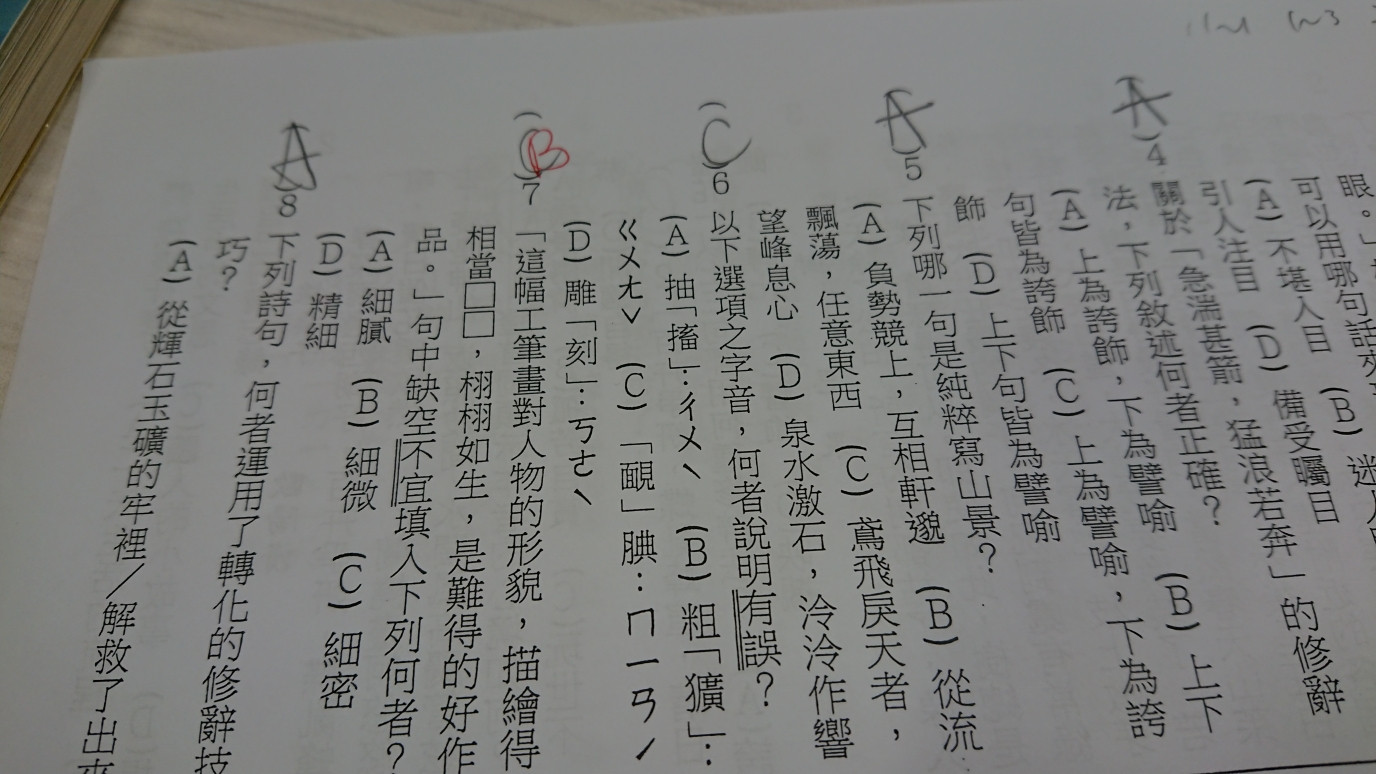 眼。」
可以用哪句話來
(A) 不堪入目 (B) 迷人
引人注目 (D) 備受矚目
(A) 4 關於「急湍甚箭，猛浪若奔」的修辭
法，下列敘述何者正確？
(A) 上為誇飾，下為譬喻 (B) 上下
句皆為誇飾 (C) 上為譬喻，下為誇
飾 (D) 上下句皆為譬喻
(A) 5 下列哪一句是純粹寫山景？
(A) 負勢競上，互相軒邈 (B) 從流
飄蕩，任意東西 (C) 鳶飛戾天者，
望峰息心 (D) 泉水激石，泠泠作響
(C) 6 以下選項之字音，何者說明有誤？
(A) 抽「搐」：ㄔㄨˋ (B) 粗「獷」：
ㄍㄨㄤˇ (C) 「靦」腆：ㄇㄧㄢˊ
(D) 雕「刻」：ㄎㄜˋ
(C) B 7 「這幅工筆畫對人物的形貌，描繪得
相當□□，栩栩如生，是難得的好作
品。」句中缺空不宜填入下列何者？
(A) 細膩 (B) 細微 (C) 細密
(D) 精細
(A) 8 下列詩句，何者運用了轉化的修辭技
巧？
(A) 從輝石玉礦的牢裡／解救了出來